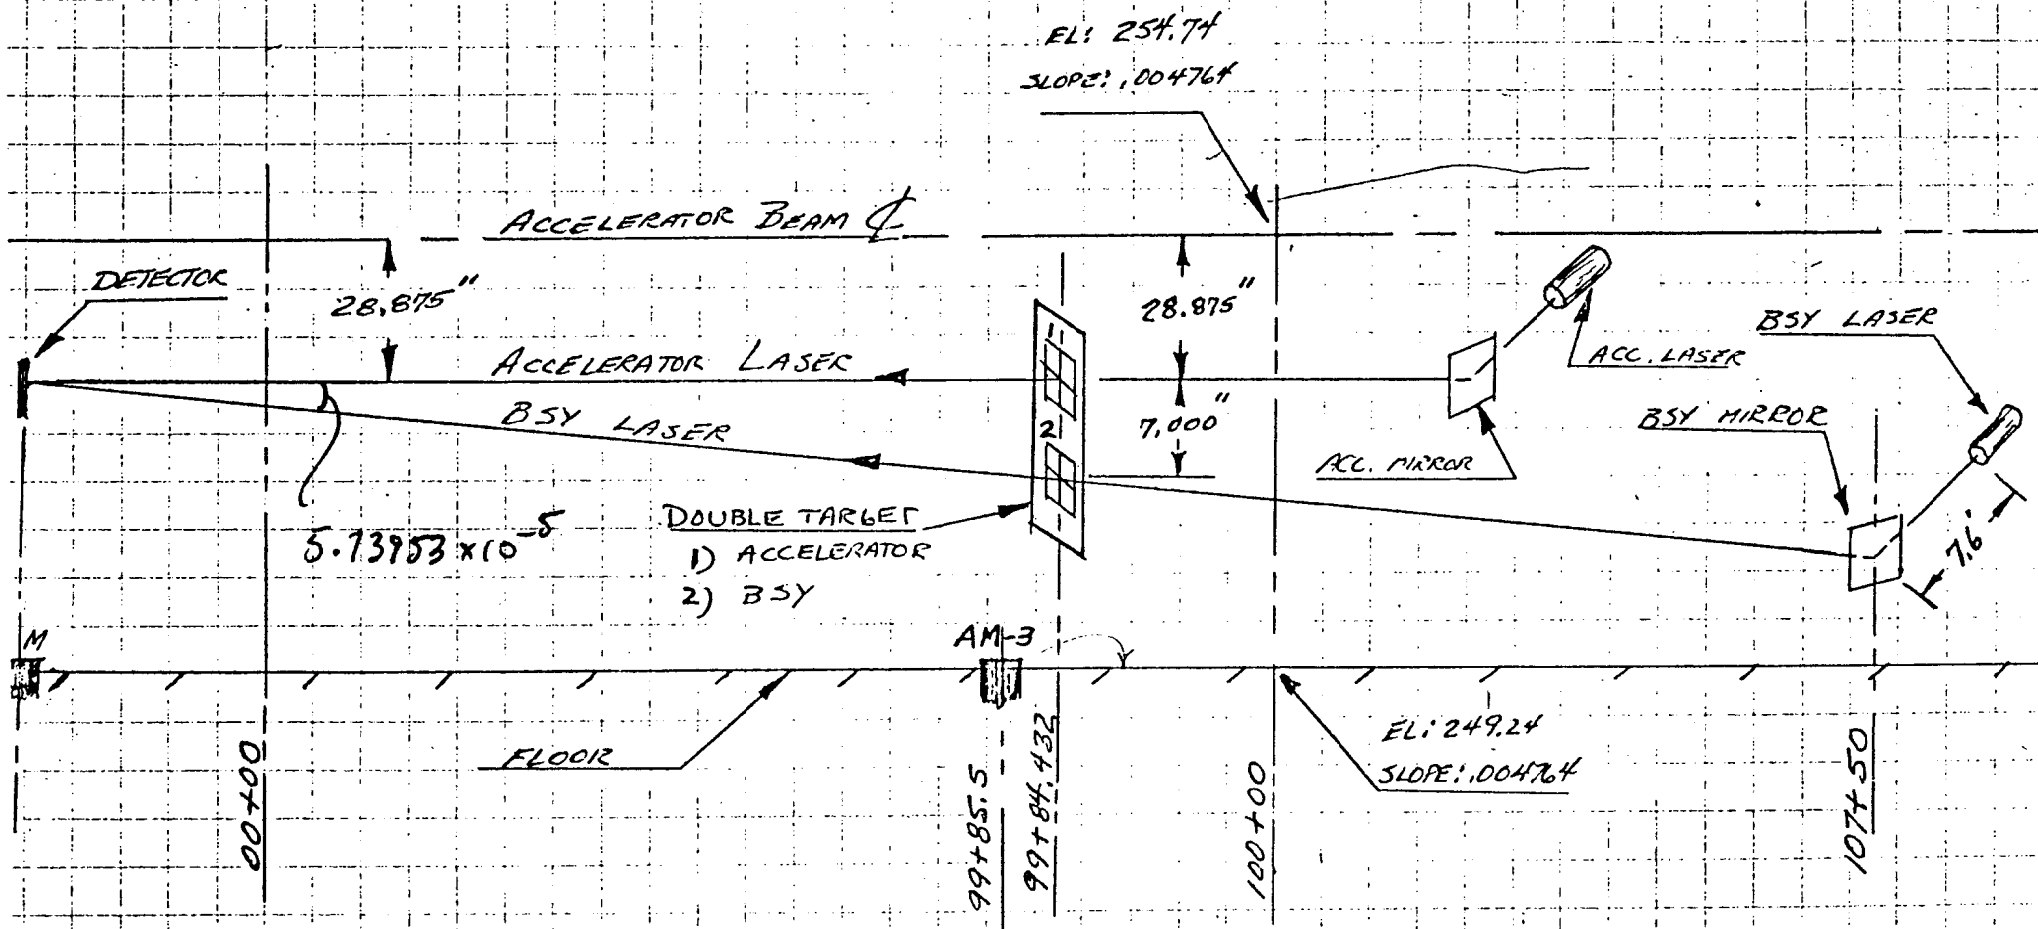 EL: 254.74
SLOPE: .004764
ACCELERATOR BEAM ℄
DETECTOR
28.875"
28.875"
BSY LASER
ACC. LASER
ACCELERATOR LASER
1
BSY LASER
2
7.000"
BSY MIRROR
ACC. MIRROR
5.73953 x 10-5
DOUBLE TARGET
1) ACCELERATOR
2) BSY
7.6'
M
AM-3
FLOOR
EL: 249.24
SLOPE: .004764
00+00
99+85.5
99+84.432
100+00
107+50